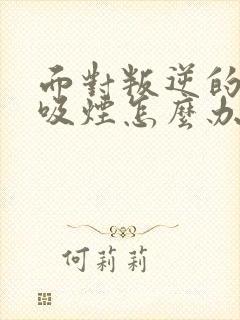 而對叛逆的
吸煙怎麼办
何莉莉